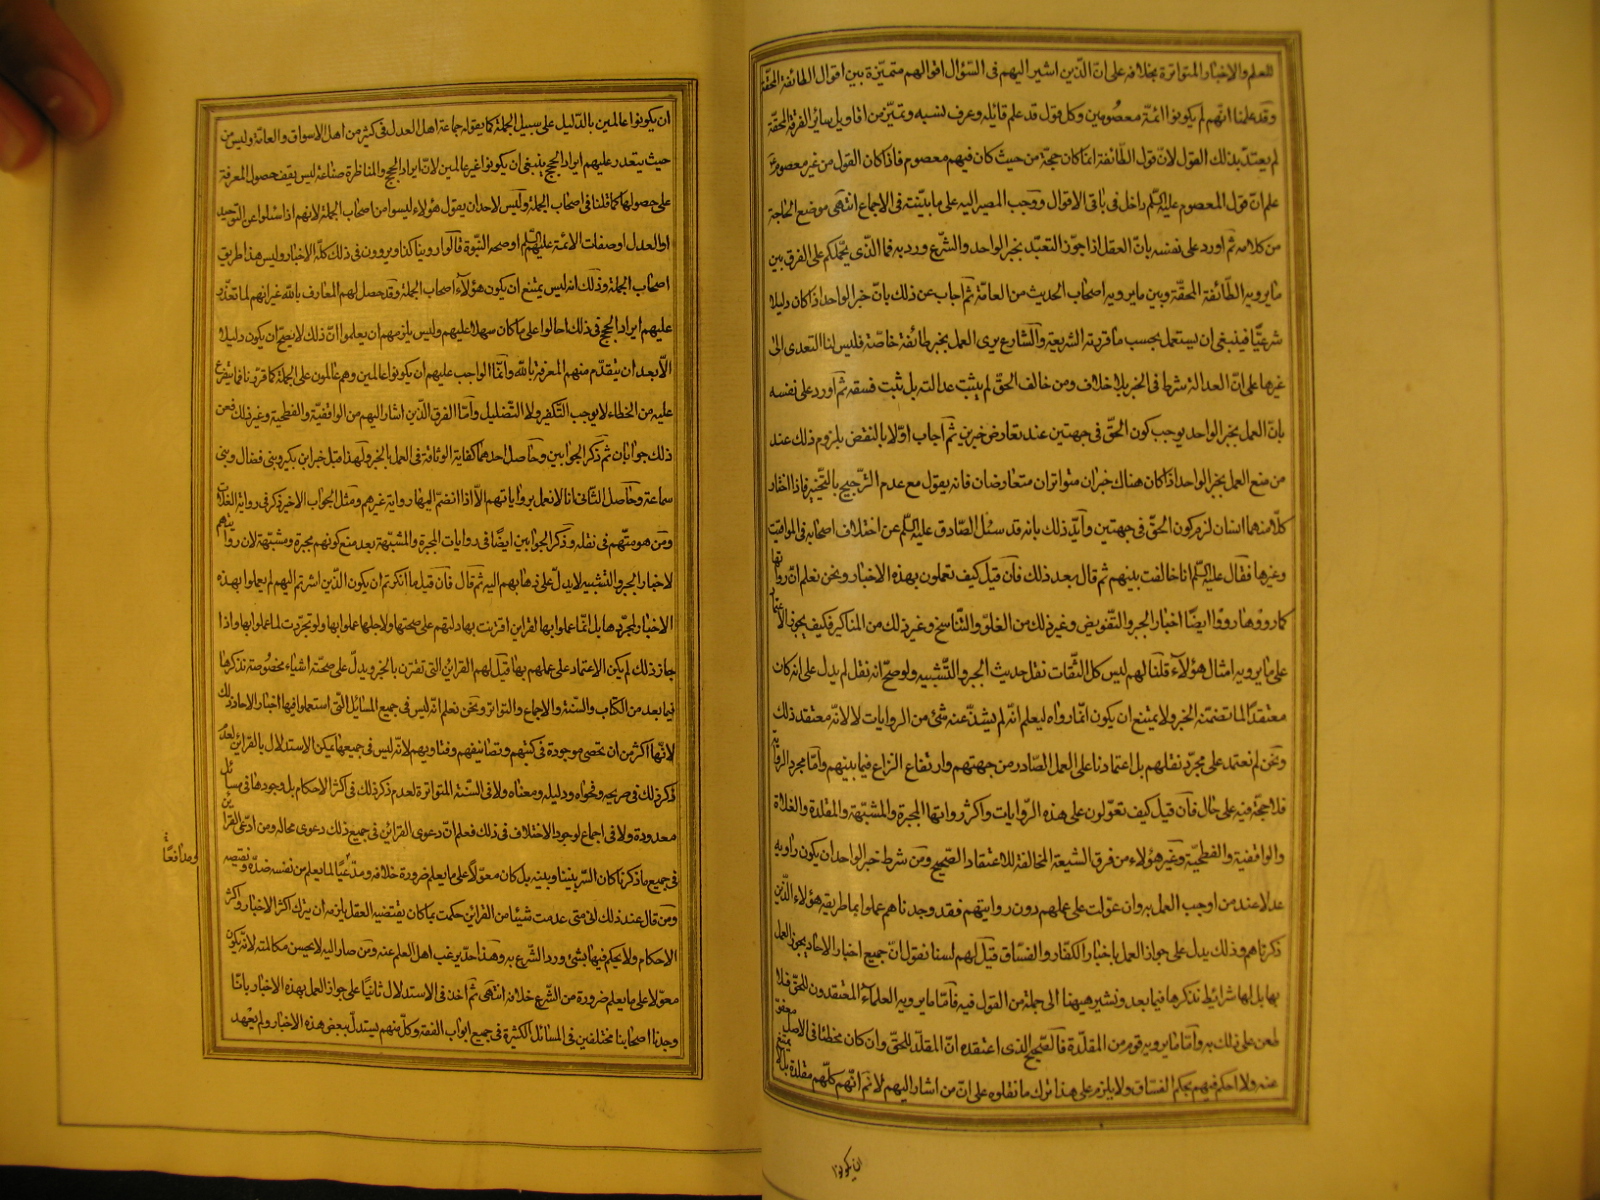 للعلم والاخبار المتواترة بخلافه على انّ الّذين اشير اليهم فى السّؤال اقوالهم متميّزة بين اقوال الطائفة المحقّة
وقد علمنا انّهم لم يكونوا ائمّة معصومين وكل قول قد علم قائله وعرف نسبه وتميّز من اقاويل سائر الفرقة المحقّة
لم يعتدّ بذلك القول لانّ قول الطّائفة انما كان حجّة من حيث كان فيهم معصوم فاذا كان القول من غير معصوم
علم انّ قول المعصوم عليه السّلم داخل فى باقى الاقوال ووجب المصير اليه على ما بيّنته فى الاجماع انتهى موضع الحاجة
من كلامه ثم اورد على نفسه بانّ العقل اذا جوّز التعبّد بخبر الواحد والشّرع ورد به فما الّذى يحملكم على الفرق بين
ما يرويه الطّائفة المحقّة وبين ما يرويه اصحاب الحديث من العامّة ثم اجاب عن ذلك بانّ خبر الواحد اذا كان دليلا
شرعيّا فينبغى ان يستعمل بحسب ما قررته الشريعة والشارع يرى العمل بخبر طائفة خاصّة فليس لنا التعدى الى
غيرها على انّ العدالة شرط فى الخبر بلا خلاف ومن خالف الحقّ لم يثبت عدالته بل ثبت فسقه ثم اورد على نفسه
بانّ العمل بخبر الواحد يوجب كون الحقّ فى جهتين عند تعارض خبرين ثم اجاب اوّلا بالنقض بلزوم ذلك عند
من منع العمل بخبر الواحد اذا كان هناك خبران متواتران متعارضان فانه يقول مع عدم الترجيح بالتخيير فاذا اختار
كلّا منهما انسان لزم كون الحقّ فى جهتين وايّد ذلك بانه قد سئل الصّادق عليه السّلم عن اختلاف اصحابه فى المواقيت
وغيرها فقال عليه السّلم انا خالفت بينهم ثم قال بعد ذلك فان قيل كيف تعملون بهذه الاخبار ونحن نعلم انّ رواتها
كما رووها رووا ايضًا اخبار الجبر والتفويض وغير ذلك من الغلوّ والتّناسخ وغير ذلك من المناكير فكيف يجوز الاعتماد
على ما يرويه امثال هؤلاء قلنا لهم ليس كل الثّقات نقل حديث الجبر والتّشبيه ولو صحّ انه نقل لم يدل على انه كان
معتقدًا لما تضمّنه الخبر ولا يمتنع ان يكون انما رواه ليعلم انّه لم يشذّ عنه شئ من الروايات لا لانّه معتقد ذلك
ونحن لم نعتمد على مجرّد نقلهم بل اعتمادنا على العمل الصّادر من جهتهم وارتفاع النزاع فيما بينهم وامّا مجرد الرواية
فلا حجّة فيه على حال فان قيل كيف تعوّلون على هذه الرّوايات واكثر رواتها المجبرة والمشبّهة والمقلدة والغلاة
والواقفية والفطحيّة وغير هؤلاء من فرق الشيعة المخالفة للاعتقاد الصّحيح ومن شرط خبر الواحد ان يكون راويه
عدلا عند من اوجب العمل به وان عوّلت على عملهم دون روايتهم فقد وجدناهم عملوا بما طريقه هؤلاء الّذين
ذكرناهم وذلك يدل على جواز العمل باخبار الكفّار والفسّاق قيل لهم لسنا نقول انّ جميع اخبار الاحاد يجوز العمل
بها بل لها شرائط نذكرها فيما بعد ونشير هيهنا الى جملة من القول فيه فامّا ما يرويه العلماء المعتقدون للحقّ فلا
طعن على ذلك به وامّا ما يرويه قوم من المقلّدة فالصّحيح الذى اعتقده انّ المقلّد للحقّ وان كان مخطئا فى الاصل معفوّ
عنه ولا احكم فيهم بحكم الفسّاق ولا يلزم على هذا ترك ما نقلوه على انّ من اشار اليهم لا نم انّهم كلّهم مقلدة بل لا يمتنع
ان يكونوا
ان يكونوا عالمين بالدّليل على سبيل الجملة كما يقوله جماعة اهل العدل فى كثير من اهل الاسواق والعامّة وليس من
حيث يتعذر عليهم ايراد الحجج ينبغى ان يكونوا غير عالمين لانّ ايراد الحجج والمناظرة صناعة ليس يقف حصول المعرفة
على حصولها كما قلنا فى اصحاب الجملة وليس لاحد ان يقول هؤلاء ليسوا من اصحاب الجملة لانهم اذا سئلوا عن التوحيد
او العدل او صفات الائمّة عليهم السّلم او صحة النّبوة قالوا روينا كذا ويروون فى ذلك كلّه الاخبار وليس هذا طريق
اصحاب الجملة وذلك انه ليس يمتنع ان يكون هؤلاء اصحاب الجملة وقد حصل لهم المعارف بالله غير انهم لما تعذّر
عليهم ايراد الحجج فى ذلك احالوا على ما كان سهلا عليهم وليس يلزمهم ان يعلموا انّ ذلك لا يصحّ ان يكون دليلا
الّا بعد ان يتقدّم منهم المعرفة بالله وانّما الواجب عليهم ان يكونوا عالمين وهم عالمون على الجملة كما قررنا فما يتفرع
عليه من الخطاء لا يوجب التّكفير ولا التّضليل وامّا الفرق الّذين اشار اليهم من الواقفيّة والفطحية وغير ذلك فعن
ذلك جوابان ثم ذكر الجوابين وحاصل احدهما كفاية الوثاقة فى العمل بالخبر ولهذا قبل خبر ابن بكير وبنى فضال وبنى
سماعة وحاصل الثّانى انا لا نعمل برواياتهم الّا اذا انضمّ اليها رواية غيرهم ومثل الجواب الاخير ذكر فى رواية الغلاة
ومن هو متّهم فى نقله وذكر الجوابين ايضًا فى روايات المجبرة والمشبّهة بعد منع كونهم مجبرة ومشبّهة لان روايتهم
لاخبار الجبر والتّشبيه لا يدلّ على ذهابهم اليه ثم قال فان قيل ما انكرتم ان يكون الّذين اشرتم اليهم لم يعملوا بهذه
الاخبار لمجرّدها بل انّما عملوا بها لقراين اقترنت بها دلتهم على صحتها ولاجلها عملوا بها ولو تجرّدت لما عملوا بها واذا
جاز ذلك لم يكن الاعتماد على عملهم بها قيل لهم القراين التى تقترن بالخبر ويدلّ على صحّته اشياء مخصوصة نذكرها
فيما بعد من الكتاب والسّنة والاجماع والتواتر ونحن نعلم انّه ليس فى جميع المسائل التّى استعملوا فيها اخبار الاحاد ذلك
لانّها اكثر من ان تحصى موجودة فى كتبهم وتصانيفهم وفتاويهم لانّه ليس فى جميعها يمكن الاستدلال بالقراين لعدم
ذكر ذلك فى صريحه وفحواه ودليله ومعناه ولا فى السّنة المتواترة لعدم ذكر ذلك فى اكثر الاحكام بل وجودها فى مسائل
معدودة ولا فى اجماع لوجود الاختلاف فى ذلك فعلم انّ دعوى القراين فى جميع ذلك دعوى محالة ومن ادّعى القراين
فى جميع ما ذكرنا كان السّبر بيننا وبينه بل كان معوّلًا على ما يعلم ضرورة خلافه ومدّعيًا لما يعلم من نفسه ضدّه ونقيضه
ومدافعًا
ومن قال عند ذلك انّى متى عدمت شيئًا من القراين حكمت بما كان يقتضيه العقل يلزمه ان يترك اكثر الاخبار واكثر
الاحكام ولا يحكم فيها بشئ ورد الشّرع به وهذا حدّ يرغب اهل العلم عنه ومن صار اليه لا يحسن مكالمته لانّه يكون
معوّلا على ما يعلم ضرورة من الشّرع خلافه انتهى ثم اخذ فى الاستدلال ثانيًا على جواز العمل بهذه الاخبار بانّا
وجدنا اصحابنا مختلفين فى المسائل الكثيرة فى جميع ابواب الفقه وكلّ منهم يستدلّ ببعض هذه الاخبار ولم يعهد